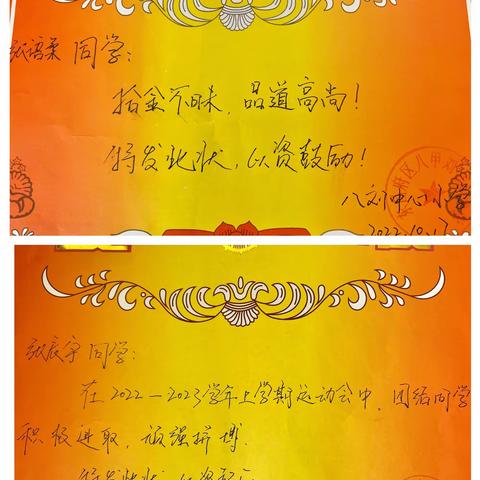 张语柔 同学:
拾金不昧，品道高尚!
特发此状，以资鼓励!
八刘中心小学
2022.10.17
张辰宇 同学:
在2022—2023学年上学期运动会中，团结同学
积极进取，顽强拼搏.
特发此状，以资鼓励